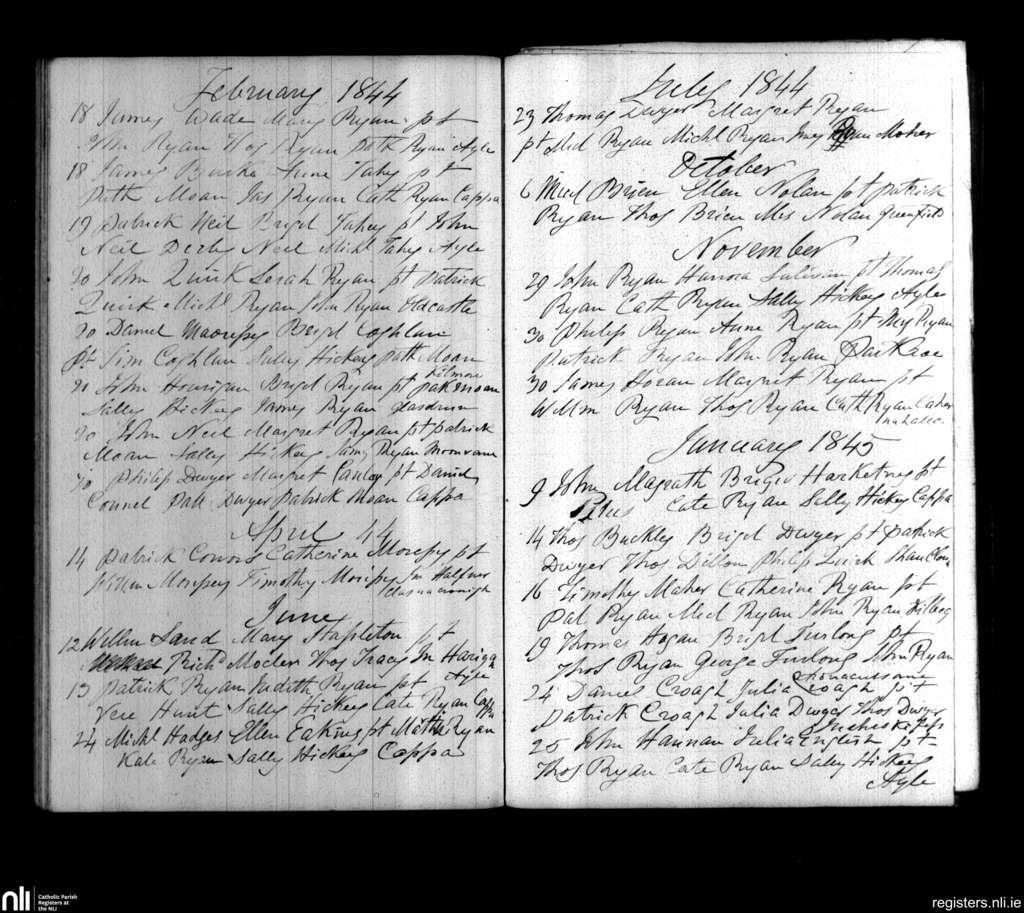 February 1844
18 James Wade Mary Ryan pt
Wm Ryan Thos Ryan Path Ryan Ayle
18 James Burke Anne Fahy pt
Path Moan Jas Ryan Cath Ryan Cappa
19 Patrick Neil Brigt Fahey pt John
Neil Derby Neil Michl Fahy Ayle
20 John Quirk Sarah Ryan pt Patrick
Quirk Michl Ryan John Ryan Oldcastle
20 Daniel Brigt Coghlan
pt Tim Coghlan Sally Hickey Path Moan
Kilmore
20 John Hourigan Brigt Ryan pt Pak Moan
Sally Hickey James Ryan
20 John Neil Margret Ryan pt Patrick
Moan Sally Hickey Jamy Ryan Moonvane
20 Philip Dwyer Margret pt Daniel
Connel Patt Dwyer Patrick Moan Cappa
April 44
14 Patrick Connors Catherine pt
Willm Timothy Jn
June
12 Willm Sand Mary Stapleton pt
Richd Thos Tracy Jn
Ayle
13 Patrick Ryan Judith Ryan pt
Vere Hunt Sally Hickey Cate Ryan Cappa
24 Michl Hodges Ellen Eakins pt Mathw Ryan
Kate Ryan Sally Hickey Cappa
July 1844
23 Thomas Dwyer Margret Ryan
pt Micl Ryan Michl Ryan Jmy Ryan Moher
October
6 Micl Brien Ellen Nolan pt Patrick
Ryan Thos Brien Mrs Nolan Greenfield
November
29 John Ryan Hanora Sulivan pt Thomas
Ryan Cath Ryan Sally Hickey Ayle
30 Philip Ryan Anne Ryan pt Ryan
Patrick Ryan John Ryan
30 James Horan Margret Ryan pt
Willm Ryan Thos Ryan Cath Ryan Caher
nahallo.
January 1845
9 John Magrath Briget pt
Cate Ryan Sally Hickey Cappa
14 Thos Buckley Brigt Dwyer pt Patrick
Dwyer Thos Dillon Philip Quirk
16 Timothy Maher Catherine Ryan pt
Pat Ryan Micl Ryan John Ryan Kilbeg
19 Thomas Hogan Brigt Furlong pt
Thos Ryan George Furlong John Ryan
24 Daniel Croagh Julia Croagh pt
Patrick Croagh Julia Dwyer Thos Dwyer
25 John Hannan Julia English pt
Thos Ryan Cate Ryan Sally Hickey
Ayle
nli
Catholic Parish
Registers at
the NLI
registers.nli.ie